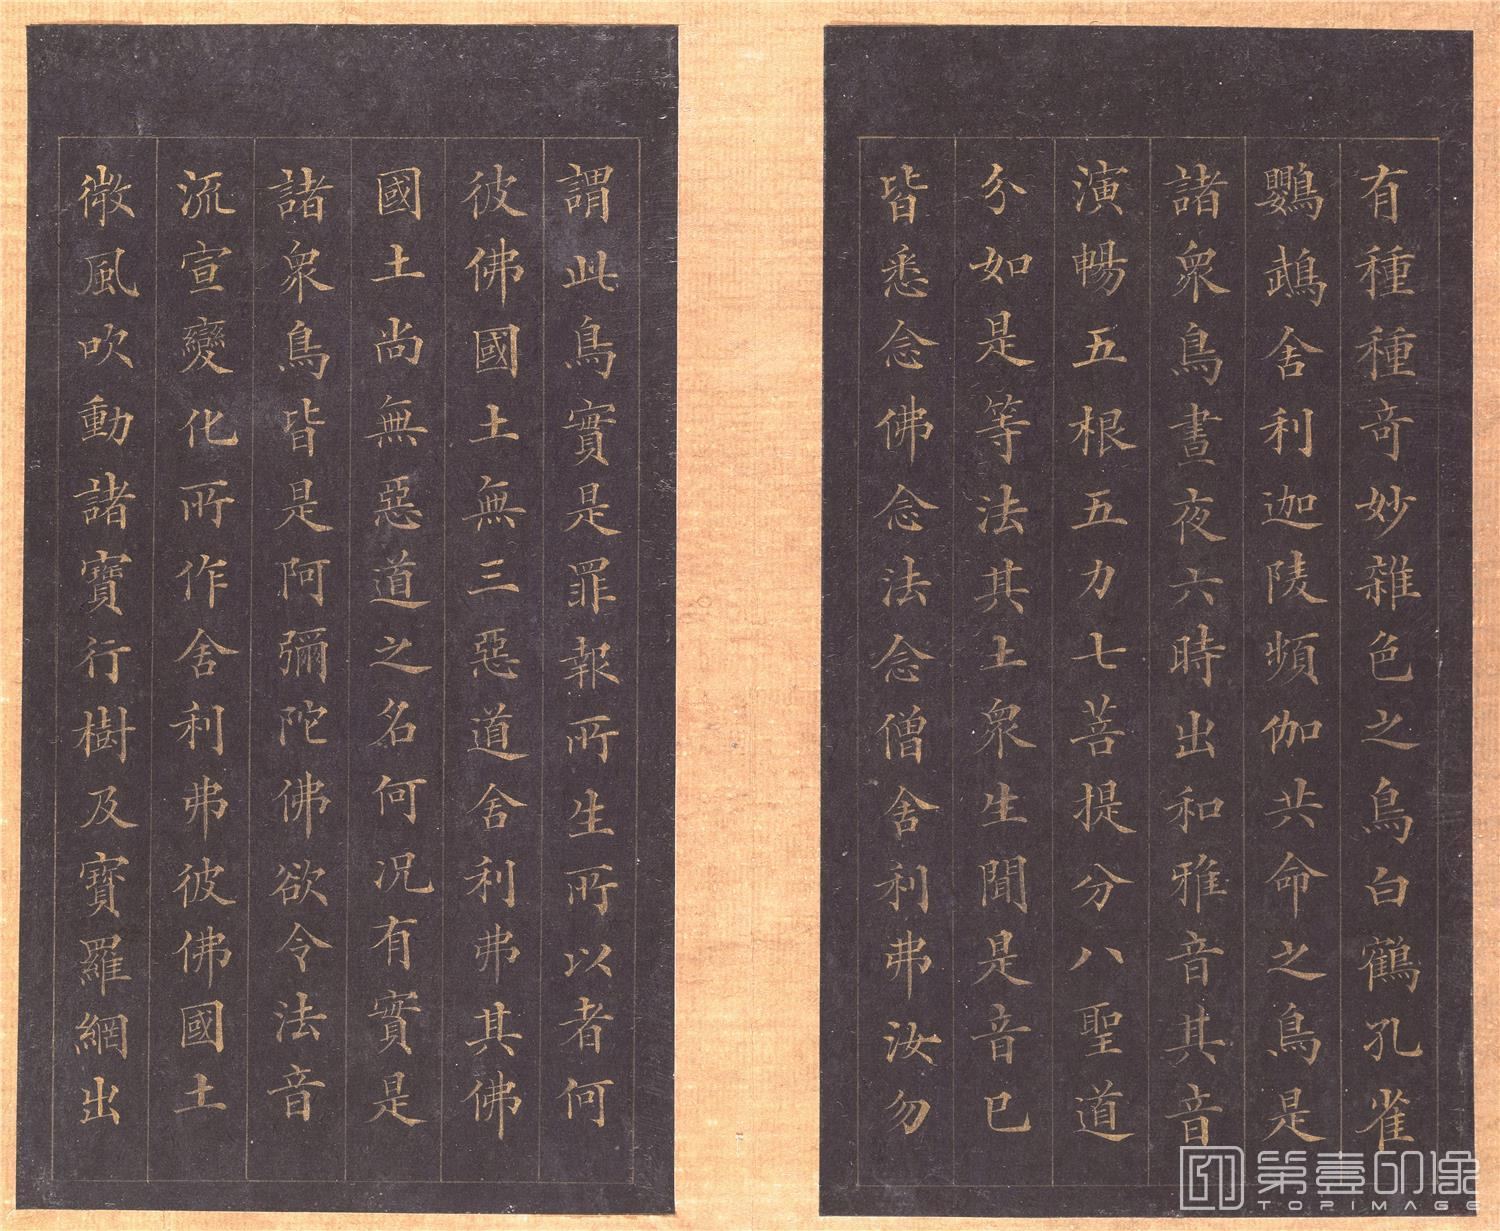 有種種奇妙雜色之鳥白鶴孔雀
鸚鵡舍利迦陵頻伽共命之鳥是
諸衆鳥晝夜六時出和雅音其音
演暢五根五力七菩提分八聖道
分如是等法其土衆生聞是音已
皆悉念佛念法念僧舍利弗汝勿
謂此鳥實是罪報所生所以者何
彼佛國土無三惡道舍利弗其佛
國土尚無惡道之名何況有實是
諸衆鳥皆是阿彌陀佛欲令法音
流宣變化所作舍利弗彼佛國土
微風吹動諸寶行樹及寶羅網出
第壹印像
TOPIMAGE